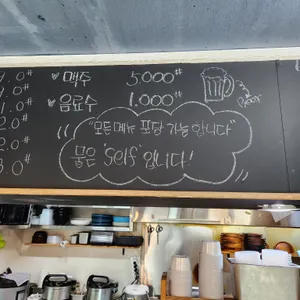 맥주 5.000#
음료수 1.000#
Beer
"모든메뉴 포장 가능 합니다"
물은 'self' 입니다!
.0#
.0#
1.0#
2.0#
2.0#
3.0#